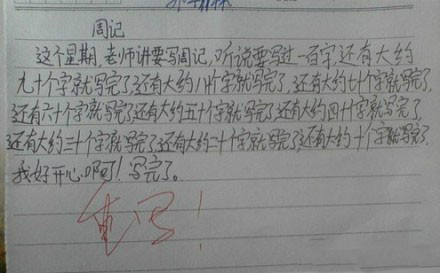 周记
这个星期,老师讲要写周记,听说要写过一百字,还有大约
九十个字就写完了,还有大约八十个字就写完了,还有大约七十个字就写完了,
还有六十个字就写完了还有大约五十个字就写完了还有大约四十个字就写完了,
还有大约三十个字就写完了还有大约二十个字就写完了,还有大约十个字就写完了.
我好开心啊可!写完了。
重写!